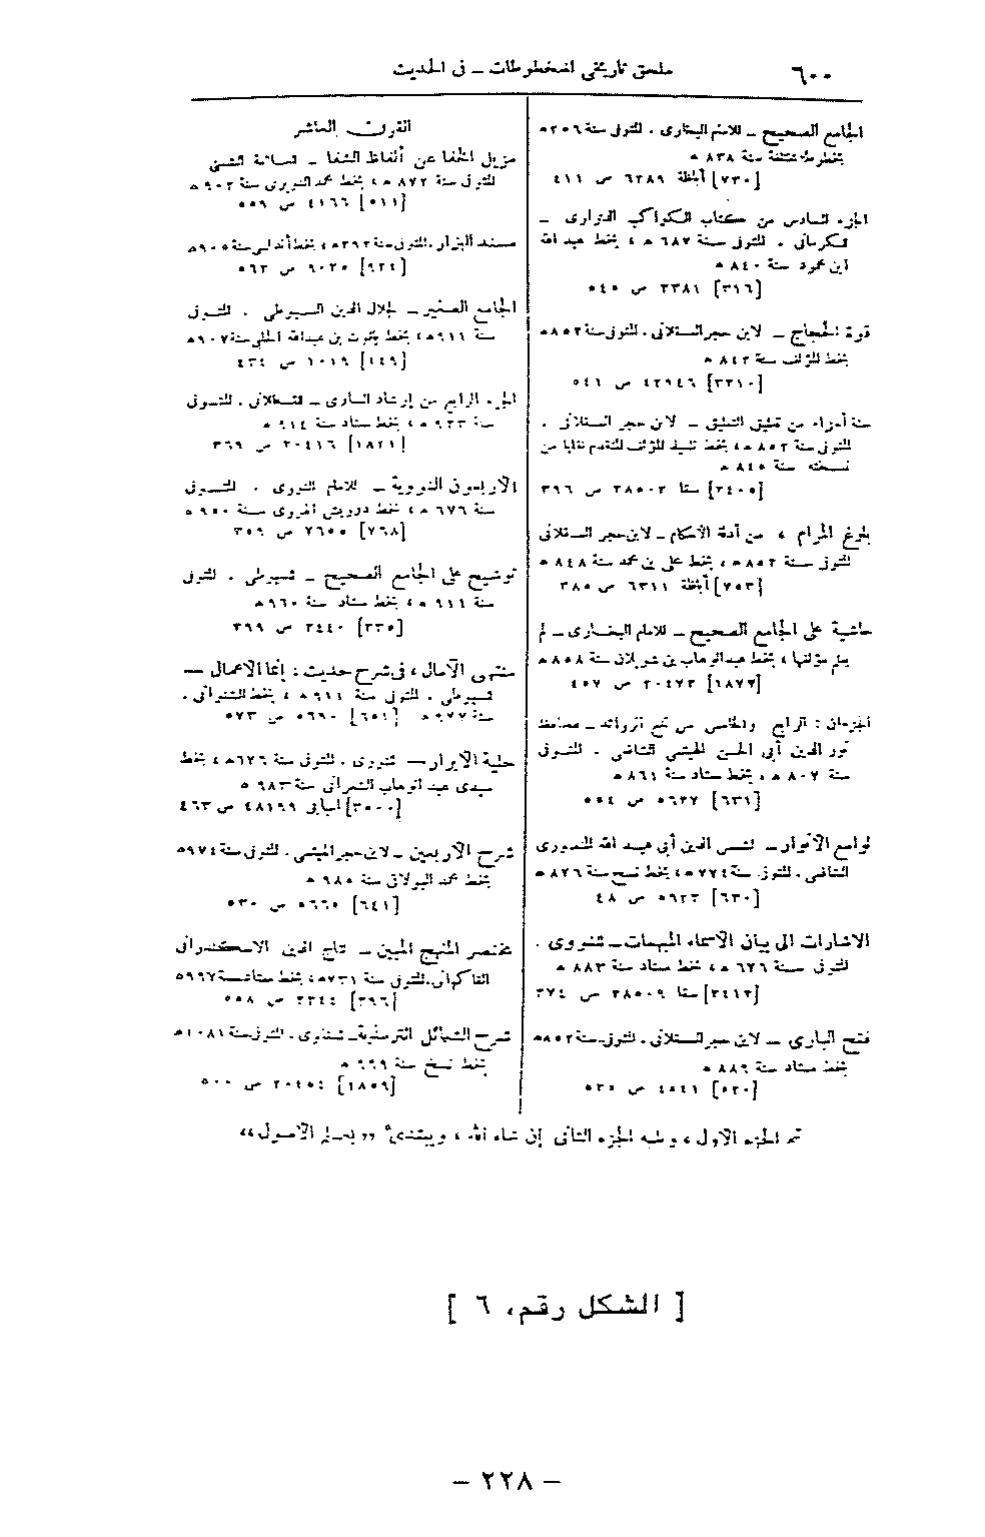 ٦٠٠
ملحق تاريخى لمخطوطات ــ فى الحديث
الجامع الصحيح ــ للامام البخارى . المتوفى سنة ٢٥٦ ه
بخطوط مختلفة سنة ٨٣٨ ه
[٧٣٠] أباظة ٦٢٨٩ ص ٤١١
الجزء السادس من كتاب الكواكب الدرارى ــ
للكرمانى . المتوفى سنة ٦٨٧ ه ، بخط عبد الله
ابن محمود سنة ٨٤٠ ه
[٣١٦] ٢٣٨١ ص ٥٤٥
قوة الحجاج ــ لابن حجر العسقلانى . المتوفى سنة ٨٥٢ ه
بخط المؤلف سنة ٨٤٢ ه
[٣٣١٠] ٤٢٩٤٦ ص ٥٤١
ستة أجزاء من تعليق التعليق ــ لابن حجر العسقلانى .
المتوفى سنة ٨٥٢ ه ، بخط تلميذ المؤلف المتقدم نقلها من
نسخته سنة ٨٤٥ ه
[٢٤٠٥] سقا ٢٨٥٠٢ ص ٣٩٦
بلوغ المرام ، من أدلة الأحكام ــ لابن حجر العسقلانى
المتوفى سنة ٨٥٢ ه ، بخط على بن محمد سنة ٨٤٨ ه
[٧٥٣] أباظة ٦٣١١ ص ٣٨٥
حاشية على الجامع الصحيح ــ للامام البخارى ــ لم
يعلم مؤلفها ، بخط عبد الوهاب بن سنة ٨٥٨ ه
[١٨٧٧] ٢٠٤٧٣ ص ٤٥٧
الجزءان : الرابع والخامس من مجمع الزوائد ــ للحافظ
نور الدين أبى الحسن الهيثمى الشافعى . المتوفى
سنة ٨٠٧ ه ، بخط معتاد سنة ٨٦١ ه
[٦٣٩] ٥٦٣٧ ص ٥٥٤
لوامع الأنوار ــ لشمس الدين أبى عبد الله المنصورى
الشافعى . المتوفى سنة ٧٧٤ ه ، بخط نسخ سنة ٨٧٦ ه
[٦٣٠] ٥٩٢٣ ص ٤٨
الاشارات الى بيان الاسماء المبهمات ــ للنووى .
المتوفى سنة ٦٧٦ ه ، بخط معتاد سنة ٨٨٣ ه
[٢٤١٢] سقا ٢٨٥٠٩ ص ٣٧٤
فتح البارى ــ لابن حجر العسقلانى . المتوفى سنة ٨٥٢ ه
بخط معتاد سنة ٨٨٩ ه
[٥٢٠] ٤٥٤١ ص ٥٣٥
القرن العاشر
مزيل الخفا عن ألفاظ الشفا ــ للعلامة الشمنى
المتوفى سنة ٨٧٢ ه ، بخط محمد سنة ٩٠٢ ه
[٥١١] ٤١٦٦ ص ٥٥٩
مسند البزار . المتوفى سنة ٢٩٢ ه ، بخط أندلسى سنة ٩٠٥ ه
[٩٢٤] ٩٠٢٥ ص ٥٦٢
الجامع الصغير ــ لجلال الدين السيوطى . المتوفى
سنة ٩١١ ه ، بخط ياقوت بن عبدالله الحلبى سنة ٩٠٧ ه
[١٤٩] ١٠١٩ ص ٤٣٤
الجزء الرابع من إرشاد السارى ــ للقسطلانى . المتوفى
سنة ٩٢٣ ه ، بخط معتاد سنة ٩١٤ ه
[١٨٢١] ٢٠٤١٦ ص ٣٦٩
الأربعون النووية ــ للامام النووى . المتوفى
سنة ٦٧٦ ه ، بخط درويش الهروى سنة ٩٥٠ ه
[٧٦٨] ٧٦٥٥ ص ٣٥٩
توشيح على الجامع الصحيح ــ للسيوطى . المتوفى
سنة ٩١١ ه ، بخط معتاد سنة ٩٦٠ ه
[٣٣٥] ٢٤٤٠ ص ٣٩٩
منتهى الآمال ، فى شرح حديث : إنما الأعمال ــ
للسيوطى . المتوفى سنة ٩١١ ه ، بخط الشعرانى .
سنة ٩٧٧ ه [٦٥١] ٥٦٩٠ ص ٥٧٣
حلية الأبرار ــ للنووى . المتوفى سنة ٦٧٦ ه ، بخط
سيدى عبد الوهاب الشعرانى سنة ٩٨٣ ه
[٣٥٠٠] امبابى ٤٨١٩٩ ص ٤٦٣
شرح الأربعين ــ لابن حجر الهيتمى . المتوفى سنة ٩٧٤ ه
بخط محمد البولاقى سنة ٩٨٥ ه
[٦٤١] ٥٦٦٥ ص ٥٣٠
مختصر المنهج المبين ــ لتاج الدين الاسكندرانى
الفاكهانى . المتوفى سنة ٧٣١ ه ، بخط معتاد سنة ٩٩٦ ه
[٣٩٦] ٣٣٤٤ ص ٥٥٨
شرح الشمائل الترمذية ــ للمناوى . المتوفى سنة ١٠٨١ ه
بخط نسخ سنة ٩٩٩ ه
[١٨٥٩] ٢٠٤٥٤ ص ٥٠٠
تم الجزء الأول ، ويليه الجزء الثانى إن شاء الله ، ويبتدئ ,, بعلم الأصول ،،
[ الشكل رقم، ٦ ]
– ٢٢٨ –